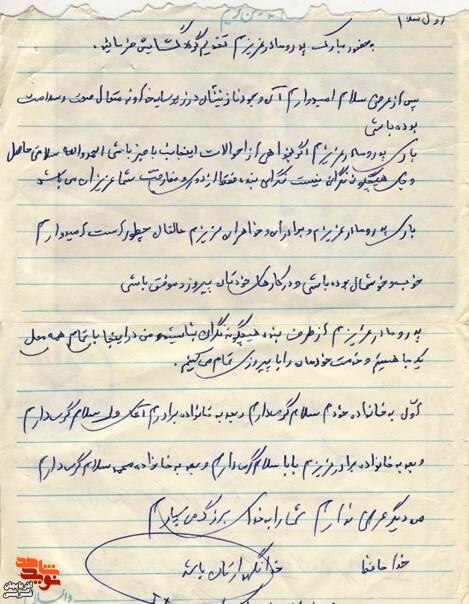 اول سلام
به حضور مبارک پدر و مادر عزیزم تقدیم گردد گشایش فرمائید.
پس از عرض سلام امیدوارم آن وجود نازنینتان در زیر سایه خداوند متعال صحت و سلامت
بوده باشی
باری پدر و مادر عزیزم اگر بخواهی از احوالات اینجانب باخبر باشی الحمدالله سلامتی حاصل
و جای هیچگونه نگرانی نیست نگرانی بنده فقط از دوری و مفارقت شما عزیزان می باشد
باری پدر و مادر عزیزم و برادران و خواهران عزیزم حالتان چطور است امیدوارم
خوب و خوشحال بوده باشی و در کارهای خودتان پیروز و موفق باشی
پدر و مادر عزیزم از طرف بنده هیچگونه نگران نباشید من در اینجا با تمام هم محلی
یک جا هستیم و خدمت خودمان را با پیروزی تمام می کنیم.
اول به خانواده خودم سلام گرم دارم و بعد به خانواده برادرم آقای ولی سلام گرم دارم
و بعد به خانواده برادر عزیزم بابا سلام گرم دارم و بعد به خانواده محمد سلام گرم دارم
من دیگر عرضی ندارم شما را به خدای بزرگ می سپارم
خدا حافظ خدا نگهدارتان باشد
والسلام
شاهد
نوید
آذربایجان
غربی